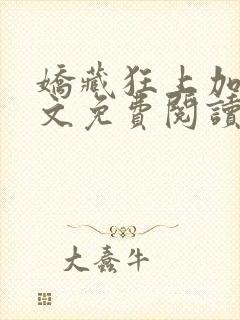 嬌藏狂上加
文免費閱讀
大蠢牛